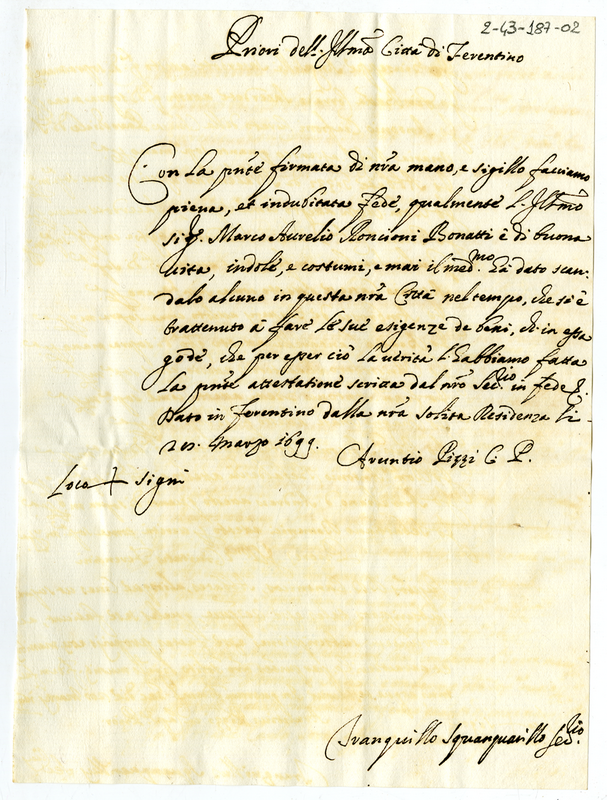 2-43-187-02
Priori dell. Illmã Città di Ferentino
Con la pnte firmata di nrã mano, e sigillo facciamo
piena, et indubitata fede, qualmente l'Illmo
sig.r Marco Aurelio Roncioni Bonatti è di buona
vita, indole, e costumi, e mai il med.mo hà dato scan-
dalo alcuno in questa nrã Città nel tempo, che si è
trattenuto à fare le sue esigenze de beni, ch'in essa
gode, che per esser ciò la verità l'habbiamo fatta
la pnte attestatione scritta dal nrõ Sec.rio in fede &.
Dato in Ferentino dalla nrã solita Residenza li-
Marzo 1699.
Aruntio Pizzi C. P.
Loco + signi
Tranquillo Squanquarillo Sec.rio